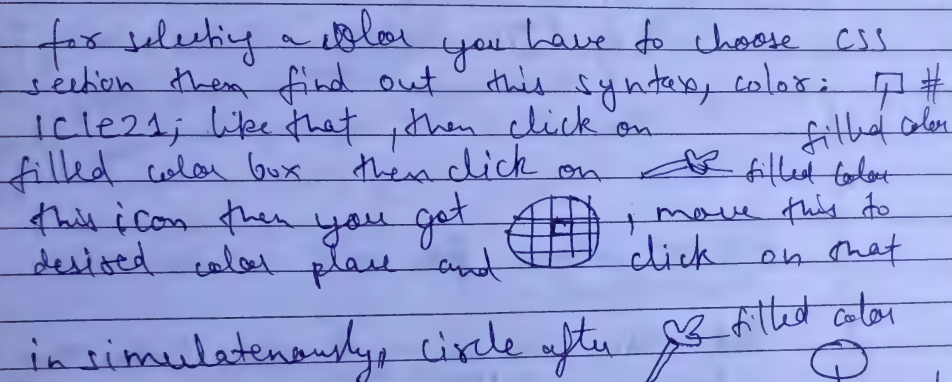 for selecting a color you have to choose CSS
section then find out this syntax, color: #
1C1e21; like that, then click on filled color
filled color box then click on filled color
this icon then you get ; move this to
desired color place and click on that
in simulatenously, circle after filled color